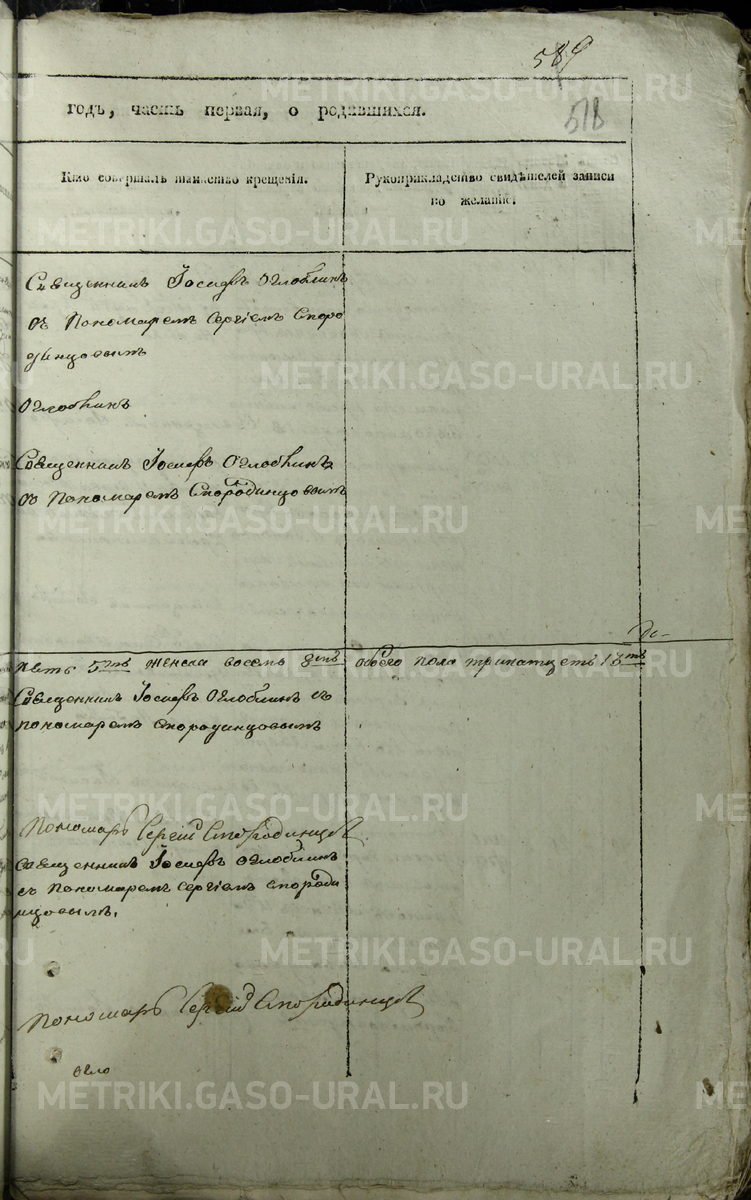 584
518
годъ, часть первая, о родившихся.
Кто совершалъ таинство крещенія.
Рукоприкладство свидѣтелей записи по желанію.
Священникъ Іосифъ Оглоблинъ
съ Пономаремъ Сергіемъ Споро
динцовымъ
Оглоблинъ
Священникъ Іосифъ Оглоблинъ
съ Пономаремъ Спородинцовымъ
пять 5ть женска восемь 8мь обоего пола тринатцеть 13ть
Священникъ Іосифъ Оглоблинъ съ
пономаремъ Спородинцовымъ
Пономарь Сергій Спородинцов
священникъ Іосифъ Оглоблинъ
съ Пономаремъ Сергіемъ спороди
нцовымъ.
Пономарь Сергій Спородинцов
METRIKI.GASO-URAL.RU